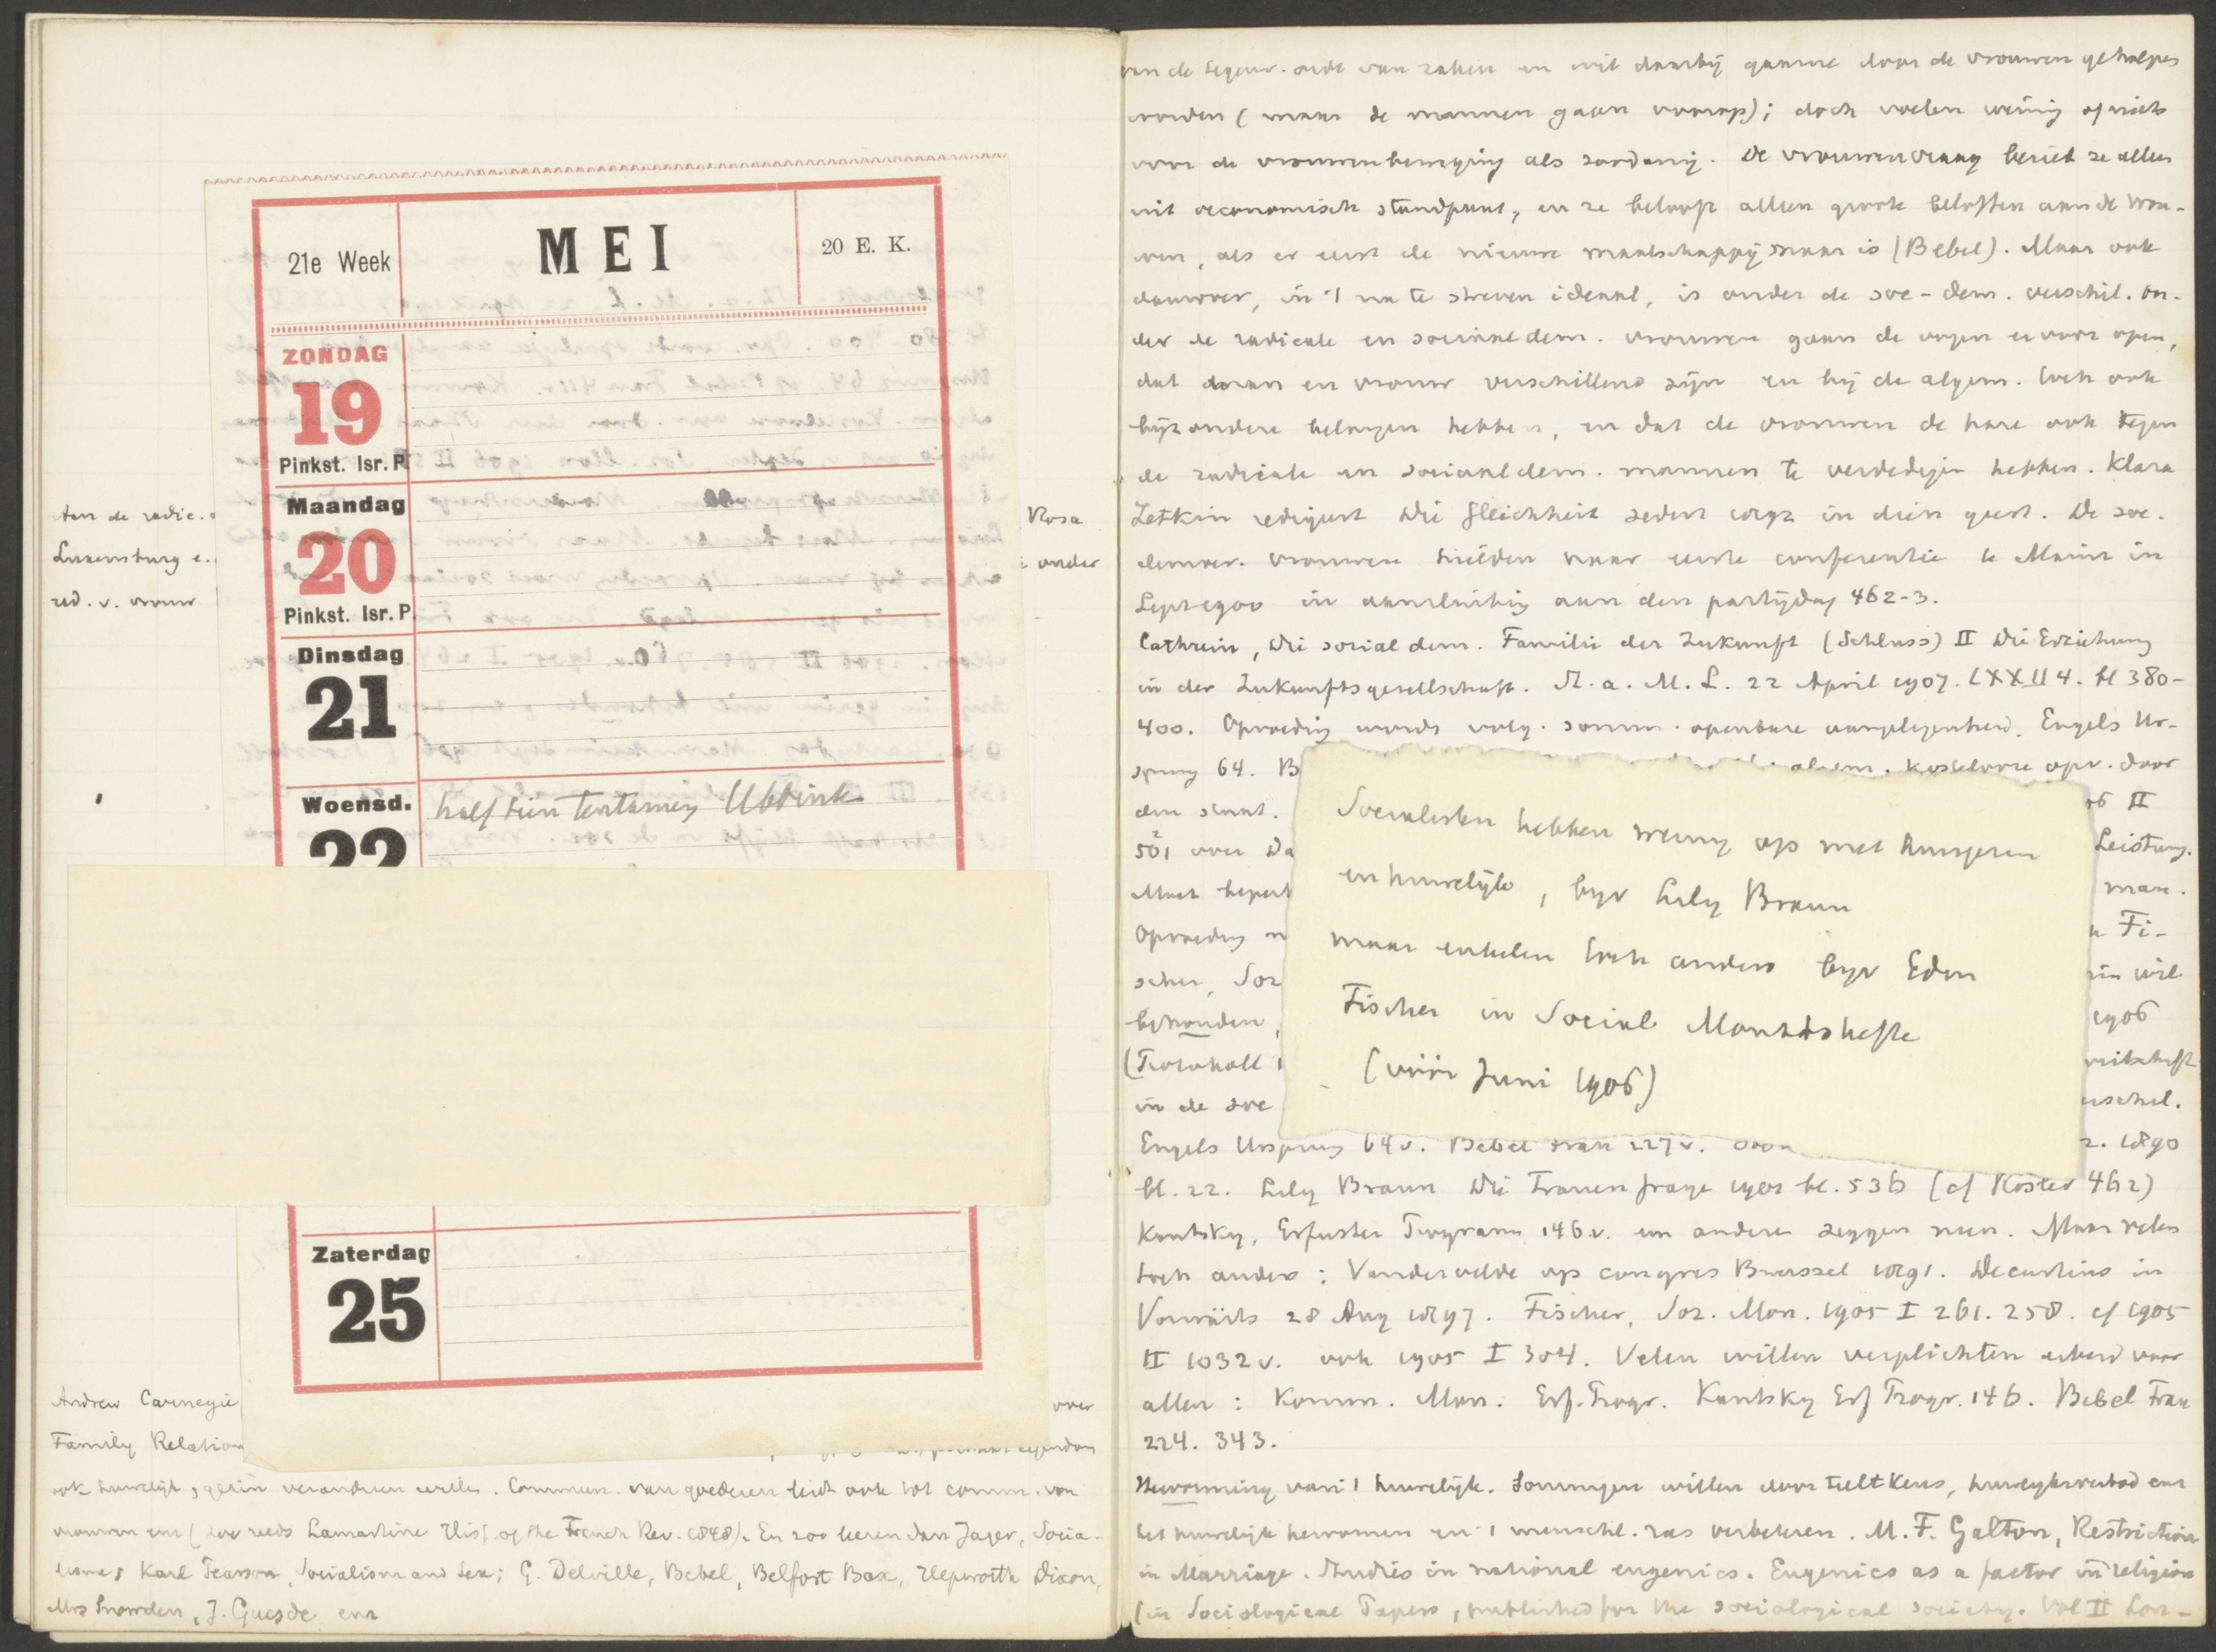 21e Week
MEI
20 E. K.
ZONDAG
19
Pinkst. Isr. P
Maandag
20
Pinkst. Isr. P.
Dinsdag
21
Woensd.
22
half tien tentamen Ubbink
Zaterdag
25
Aan de radic.
Rosa
Luxemburg e.
onder
red. v. vrouw
Andrew Carnegie
over
Family Relation
ook huwelijk, gezin veranderen willen. Commun. van goederen leidt ook tot comm. van
vrouwen enz (zoo reeds Lamartine Hist. of the French Rev. 1848). En zoo leeren dan Jager, Socia-
lisme; Karl Pearson, Socialism and Sex; G. Delville, Bebel, Belfort Bax, Hepworth Dixon,
Mrs Snowden, J. Guesde enz
van de tegenw. orde van zaken en wil daarbij gaarne door de vrouwen geholpen
worden (maar de mannen gaan voorop); doch voelen weinig of niets
voor de vrouwenbeweging als zoodanig. De vrouwenvraag beziet ze alleen
uit oeconomisch standpunt, en ze belooft alleen groote beloften aan de vrou-
wen, als er eerst de nieuwe maatschappij maar is (Bebel). Maar ook
daarover, in 't na te streven ideaal, is onder de soc-dem. verschil. On-
der de radicale en sociaaldem. vrouwen gaan de oogen ervoor open,
dat man en vrouw verschillend zijn en bij de algem. toch ook
bijzondere belangen hebben, en dat de vrouwen de hare ook tegen
de radicale en sociaaldem. mannen te verdedigen hebben. Klara
Zetkin redigeert Die Gleichheit sedert 1892 in dien geest. De soc.
democr. vrouwen hielden haar eerste conferentie te Mainz in
Sept 1900 in aansluiting aan den partijdag 462-3.
Cathrein, Die sozialdem. Familie der Zukunft (Schluss) II Die Erziehung
in der Zukunftsgesellschaft. St. a. M. L. 22 April 1907. LXXII 4. bl 380-
400. Opvoeding wordt volg. somm. openbare aangelegenheid. Engels Ur-
sprung 64. B
algem. kostelooze opv. door
den staat.
06 II
501 over Da
Leistung.
Moet beperkt
man.
Opvoeding
Fi-
scher, Soz
wil
behouden,
1906
in de soc
verschil.
Engels Ursprung 64 v. Bebel Frau 227 v.
2. 1890
bl. 22. Lily Braun Die Frauenfrage 1901 bl. 536 (cf Köster 462)
Kautsky, Erfurter Programm 146 v. en andere zeggen neen. Maar velen
toch anders: Vandervelde op congres Brussel 1891. Decurtins in
Vorwärts 28 Aug 1897. Fischer, Soz. Mon. 1905 I 261. 258. cf 1905
II 1032 v. ook 1905 I 304. Velen willen verplichten arbeid voor
allen: Komm. Man. Erf. Progr. Kautsky Erf Progr. 146. Bebel Frau
224. 343.
Hervorming van 't huwelijk. Sommigen willen door teeltkeus, huwelijksverbod enz
het huwelijk hervormen en 't menschl. ras verbeteren. M. F. Galton, Restriction
in Marriage. Studies in national eugenics. Eugenics as a factor in religion
(in Sociological Papers, published for the sociological society. Vol II Lon-
Socialisten hebben weinig op met
en huwelijk, bijv Lily Braun
maar enkelen toch anders bijv Edm
Fischer in Social Monatshefte
(vóór Juni 1906)